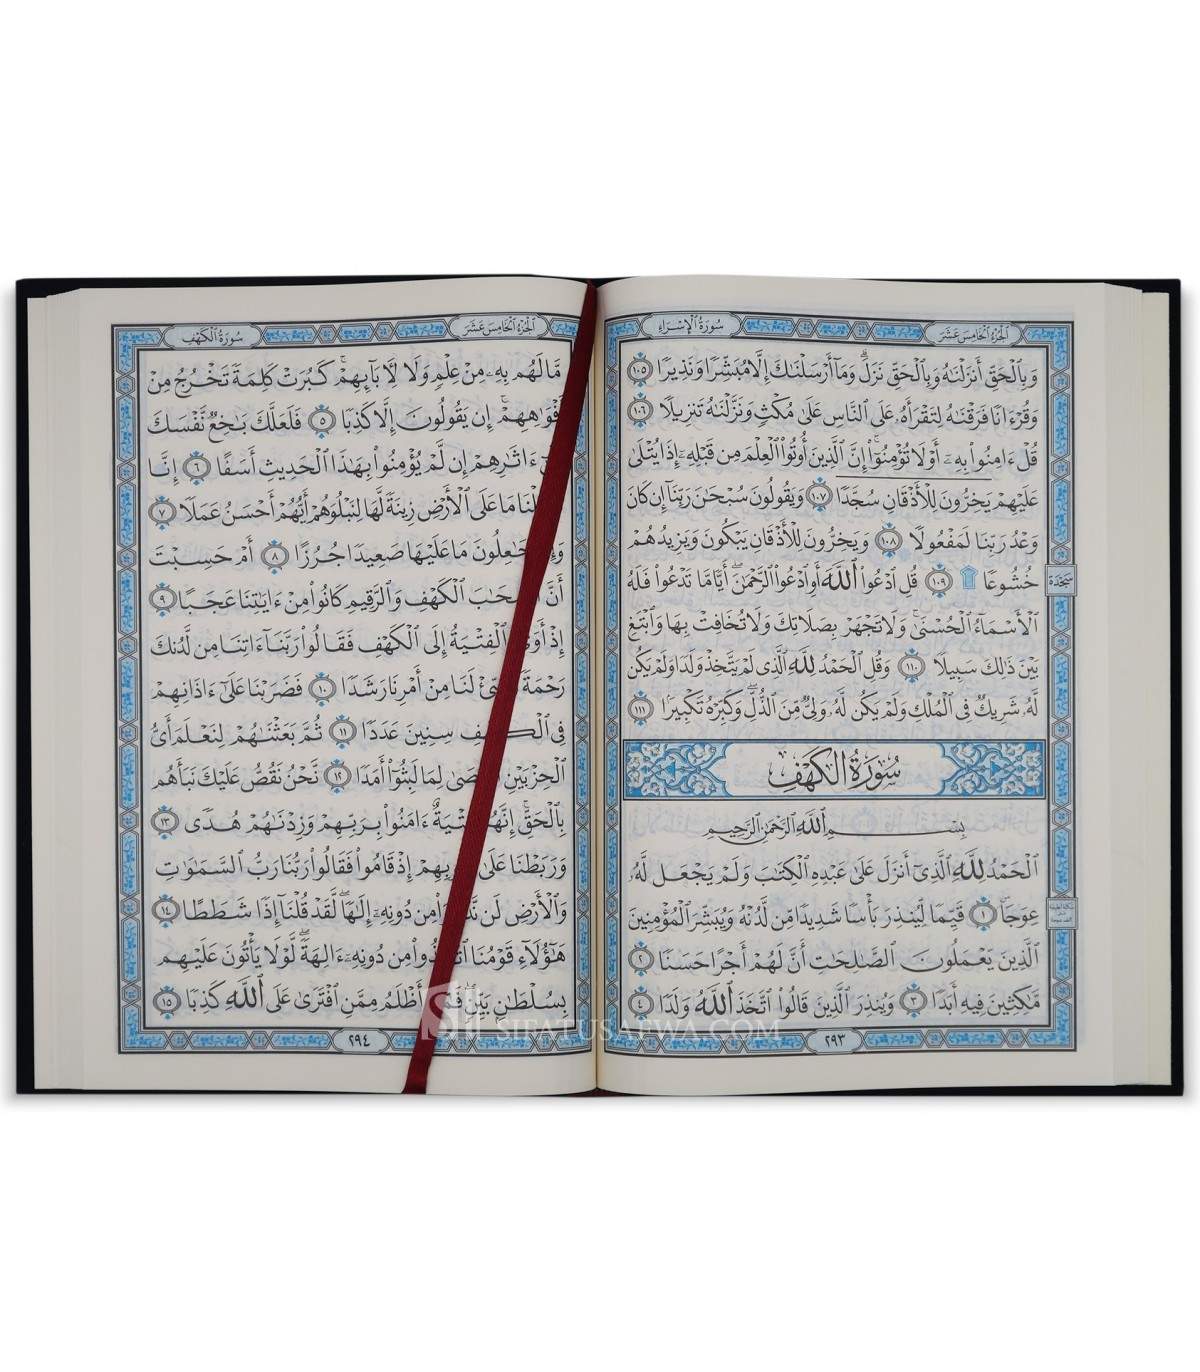 الجزء الخامس عشر
سورة الإسراء
وَبِٱلْحَقِّ أَنزَلْنَٰهُ وَبِٱلْحَقِّ نَزَلَ ۗ وَمَآ أَرْسَلْنَٰكَ إِلَّا مُبَشِّرًا وَنَذِيرًا ١٠٥
وَقُرْءَانًا فَرَقْنَٰهُ لِتَقْرَأَهُۥ عَلَى ٱلنَّاسِ عَلَىٰ مُكْثٍ وَنَزَّلْنَٰهُ تَنزِيلًا ١٠٦
قُلْ ءَامِنُوا۟ بِهِۦٓ أَوْ لَا تُؤْمِنُوٓا۟ ۚ إِنَّ ٱلَّذِينَ أُوتُوا۟ ٱلْعِلْمَ مِن قَبْلِهِۦٓ إِذَا يُتْلَىٰ
عَلَيْهِمْ يَخِرُّونَ لِلْأَذْقَانِ سُجَّدًا ١٠٧ وَيَقُولُونَ سُبْحَٰنَ رَبِّنَآ إِن كَانَ
وَعْدُ رَبِّنَا لَمَفْعُولًا ١٠٨ وَيَخِرُّونَ لِلْأَذْقَانِ يَبْكُونَ وَيَزِيدُهُمْ
خُشُوعًا ۩ ١٠٩ قُلِ ٱدْعُوا۟ ٱللَّهَ أَوِ ٱدْعُوا۟ ٱلرَّحْمَٰنَ ۖ أَيًّا مَّا تَدْعُوا۟ فَلَهُ
سجدة
ٱلْأَسْمَآءُ ٱلْحُسْنَىٰ ۚ وَلَا تَجْهَرْ بِصَلَاتِكَ وَلَا تُخَافِتْ بِهَا وَٱبْتَغِ
بَيْنَ ذَٰلِكَ سَبِيلًا ١١٠ وَقُلِ ٱلْحَمْدُ لِلَّهِ ٱلَّذِى لَمْ يَتَّخِذْ وَلَدًا وَلَمْ يَكُن
لَّهُۥ شَرِيكٌ فِى ٱلْمُلْكِ وَلَمْ يَكُن لَّهُۥ وَلِىٌّ مِّنَ ٱلذُّلِّ ۖ وَكَبِّرْهُ تَكْبِيرًۢا ١١١
سُورَةُ الكَهْفِ
بِسْمِ ٱللَّهِ ٱلرَّحْمَٰنِ ٱلرَّحِيمِ
ٱلْحَمْدُ لِلَّهِ ٱلَّذِىٓ أَنزَلَ عَلَىٰ عَبْدِهِ ٱلْكِتَٰبَ وَلَمْ يَجْعَل لَّهُۥ
عِوَجَا ۜ ١ قَيِّمًا لِّيُنذِرَ بَأْسًا شَدِيدًا مِّن لَّدُنْهُ وَيُبَشِّرَ ٱلْمُؤْمِنِينَ
ٱلَّذِينَ يَعْمَلُونَ ٱلصَّٰلِحَٰتِ أَنَّ لَهُمْ أَجْرًا حَسَنًا ٢
مَّٰكِثِينَ فِيهِ أَبَدًا ٣ وَيُنذِرَ ٱلَّذِينَ قَالُوا۟ ٱتَّخَذَ ٱللَّهُ وَلَدًا ٤
٢٩٣
الجزء الخامس عشر
سورة الكهف
مَّا لَهُم بِهِۦ مِنْ عِلْمٍ وَلَا لِـَٔابَآئِهِمْ ۚ كَبُرَتْ كَلِمَةً تَخْرُجُ مِنْ
أَفْوَٰهِهِمْ ۚ إِن يَقُولُونَ إِلَّا كَذِبًا ٥ فَلَعَلَّكَ بَٰخِعٌ نَّفْسَكَ
ءَاثَٰرِهِمْ إِن لَّمْ يُؤْمِنُوا۟ بِهَٰذَا ٱلْحَدِيثِ أَسَفًا ٦ إِنَّا
مَا عَلَى ٱلْأَرْضِ زِينَةً لَّهَا لِنَبْلُوَهُمْ أَيُّهُمْ أَحْسَنُ عَمَلًا ٧
لَجَٰعِلُونَ مَا عَلَيْهَا صَعِيدًا جُرُزًا ٨ أَمْ حَسِبْتَ
أَنَّ أَصْحَٰبَ ٱلْكَهْفِ وَٱلرَّقِيمِ كَانُوا۟ مِنْ ءَايَٰتِنَا عَجَبًا ٩
إِذْ أَوَى ٱلْفِتْيَةُ إِلَى ٱلْكَهْفِ فَقَالُوا۟ رَبَّنَآ ءَاتِنَا مِن لَّدُنكَ
رَحْمَةً لَنَا مِنْ أَمْرِنَا رَشَدًا ١٠ فَضَرَبْنَا عَلَىٰٓ ءَاذَانِهِمْ
فِى ٱلْكَهْفِ سِنِينَ عَدَدًا ١١ ثُمَّ بَعَثْنَٰهُمْ لِنَعْلَمَ أَىُّ
ٱلْحِزْبَيْنِ أَحْصَىٰ لِمَا لَبِثُوٓا۟ أَمَدًا ١٢ نَّحْنُ نَقُصُّ عَلَيْكَ نَبَأَهُم
بِٱلْحَقِّ ۚ إِنَّهُمْ فِتْيَةٌ ءَامَنُوا۟ بِرَبِّهِمْ وَزِدْنَٰهُمْ هُدًى ١٣
وَرَبَطْنَا عَلَىٰ قُلُوبِهِمْ إِذْ قَامُوا۟ فَقَالُوا۟ رَبُّنَا رَبُّ ٱلسَّمَٰوَٰتِ
وَٱلْأَرْضِ لَن نَّدْعُوَا۟ مِن دُونِهِۦٓ إِلَٰهًا ۖ لَّقَدْ قُلْنَآ إِذًا شَطَطًا ١٤
هَٰٓؤُلَآءِ قَوْمُنَا ٱتَّخَذُوا۟ مِن دُونِهِۦٓ ءَالِهَةً ۖ لَّوْلَا يَأْتُونَ عَلَيْهِم
بِسُلْطَٰنٍۭ بَيِّنٍ ۖ فَمَنْ أَظْلَمُ مِمَّنِ ٱفْتَرَىٰ عَلَى ٱللَّهِ كَذِبًا ١٥
٢٩٤
SIFATUSAFWA.COM